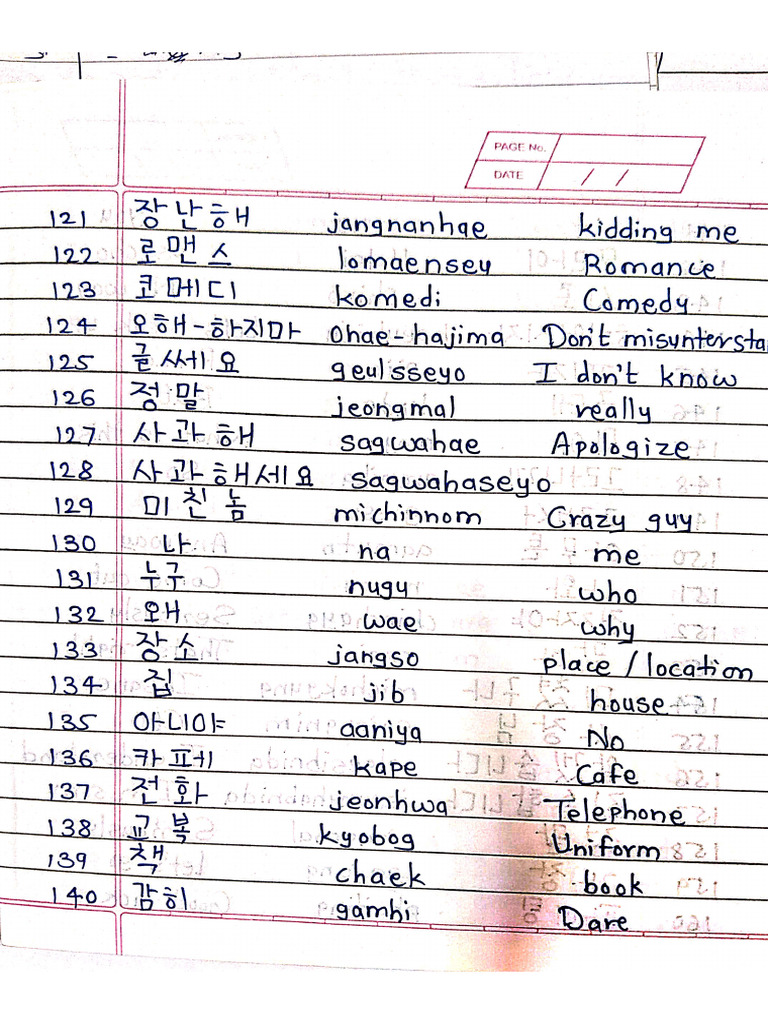 PAGE No.
DATE / /
121 장난해 jangnanhae kidding me
122 로맨스 lomaensey Romance
123 코메디 komedi Comedy
124 오해-하지마 Ohae-hajima Don't misuntersta
125 글쎄요 geulsseyo I don't know
126 정말 jeongmal really
127 사과해 sagwahae Apologize
128 사과해세요 sagwahaseyo
129 미친놈 michinnom Crazy guy
130 나 na me
131 누구 nugu who
132 왜 wae why
133 장소 jangso place / location
134 집 jib house
135 아니야 aaniya No
136 카페 kape Cafe
137 전화 jeonhwa Telephone
138 교복 kyobog Uniform
139 책 chaek book
140 감히 gamhi Dare